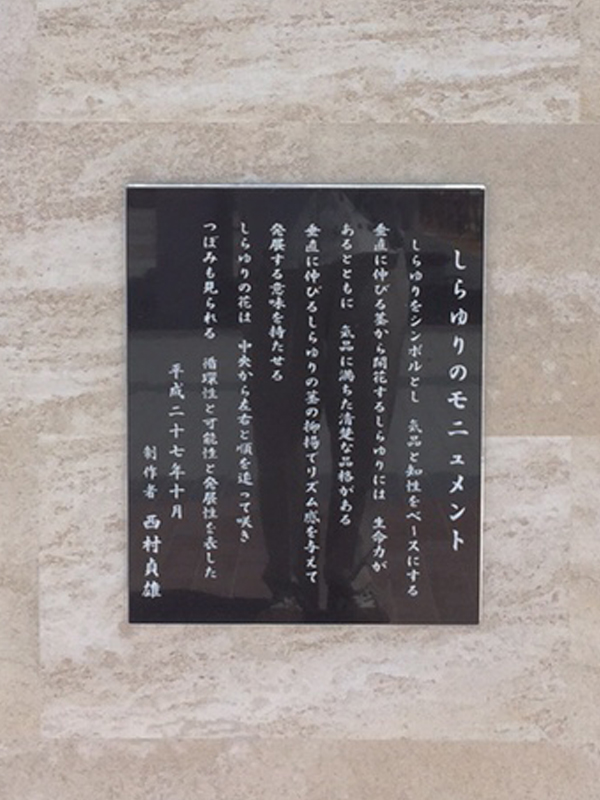 しらゆりのモニュメント
しらゆりをシンボルとし 気品と知性をベースにする
垂直に伸びる茎から開花するしらゆりには 生命力が
あるとともに 気品に満ちた清楚な品格がある
垂直に伸びるしらゆりの茎の抑揚でリズム感を与えて
発展する意味を持たせる
しらゆりの花は 中央から左右と順を追って咲き
つぼみも見られる 循環性と可能性と発展性を表した
平成二十七年十月
制作者 西村貞雄